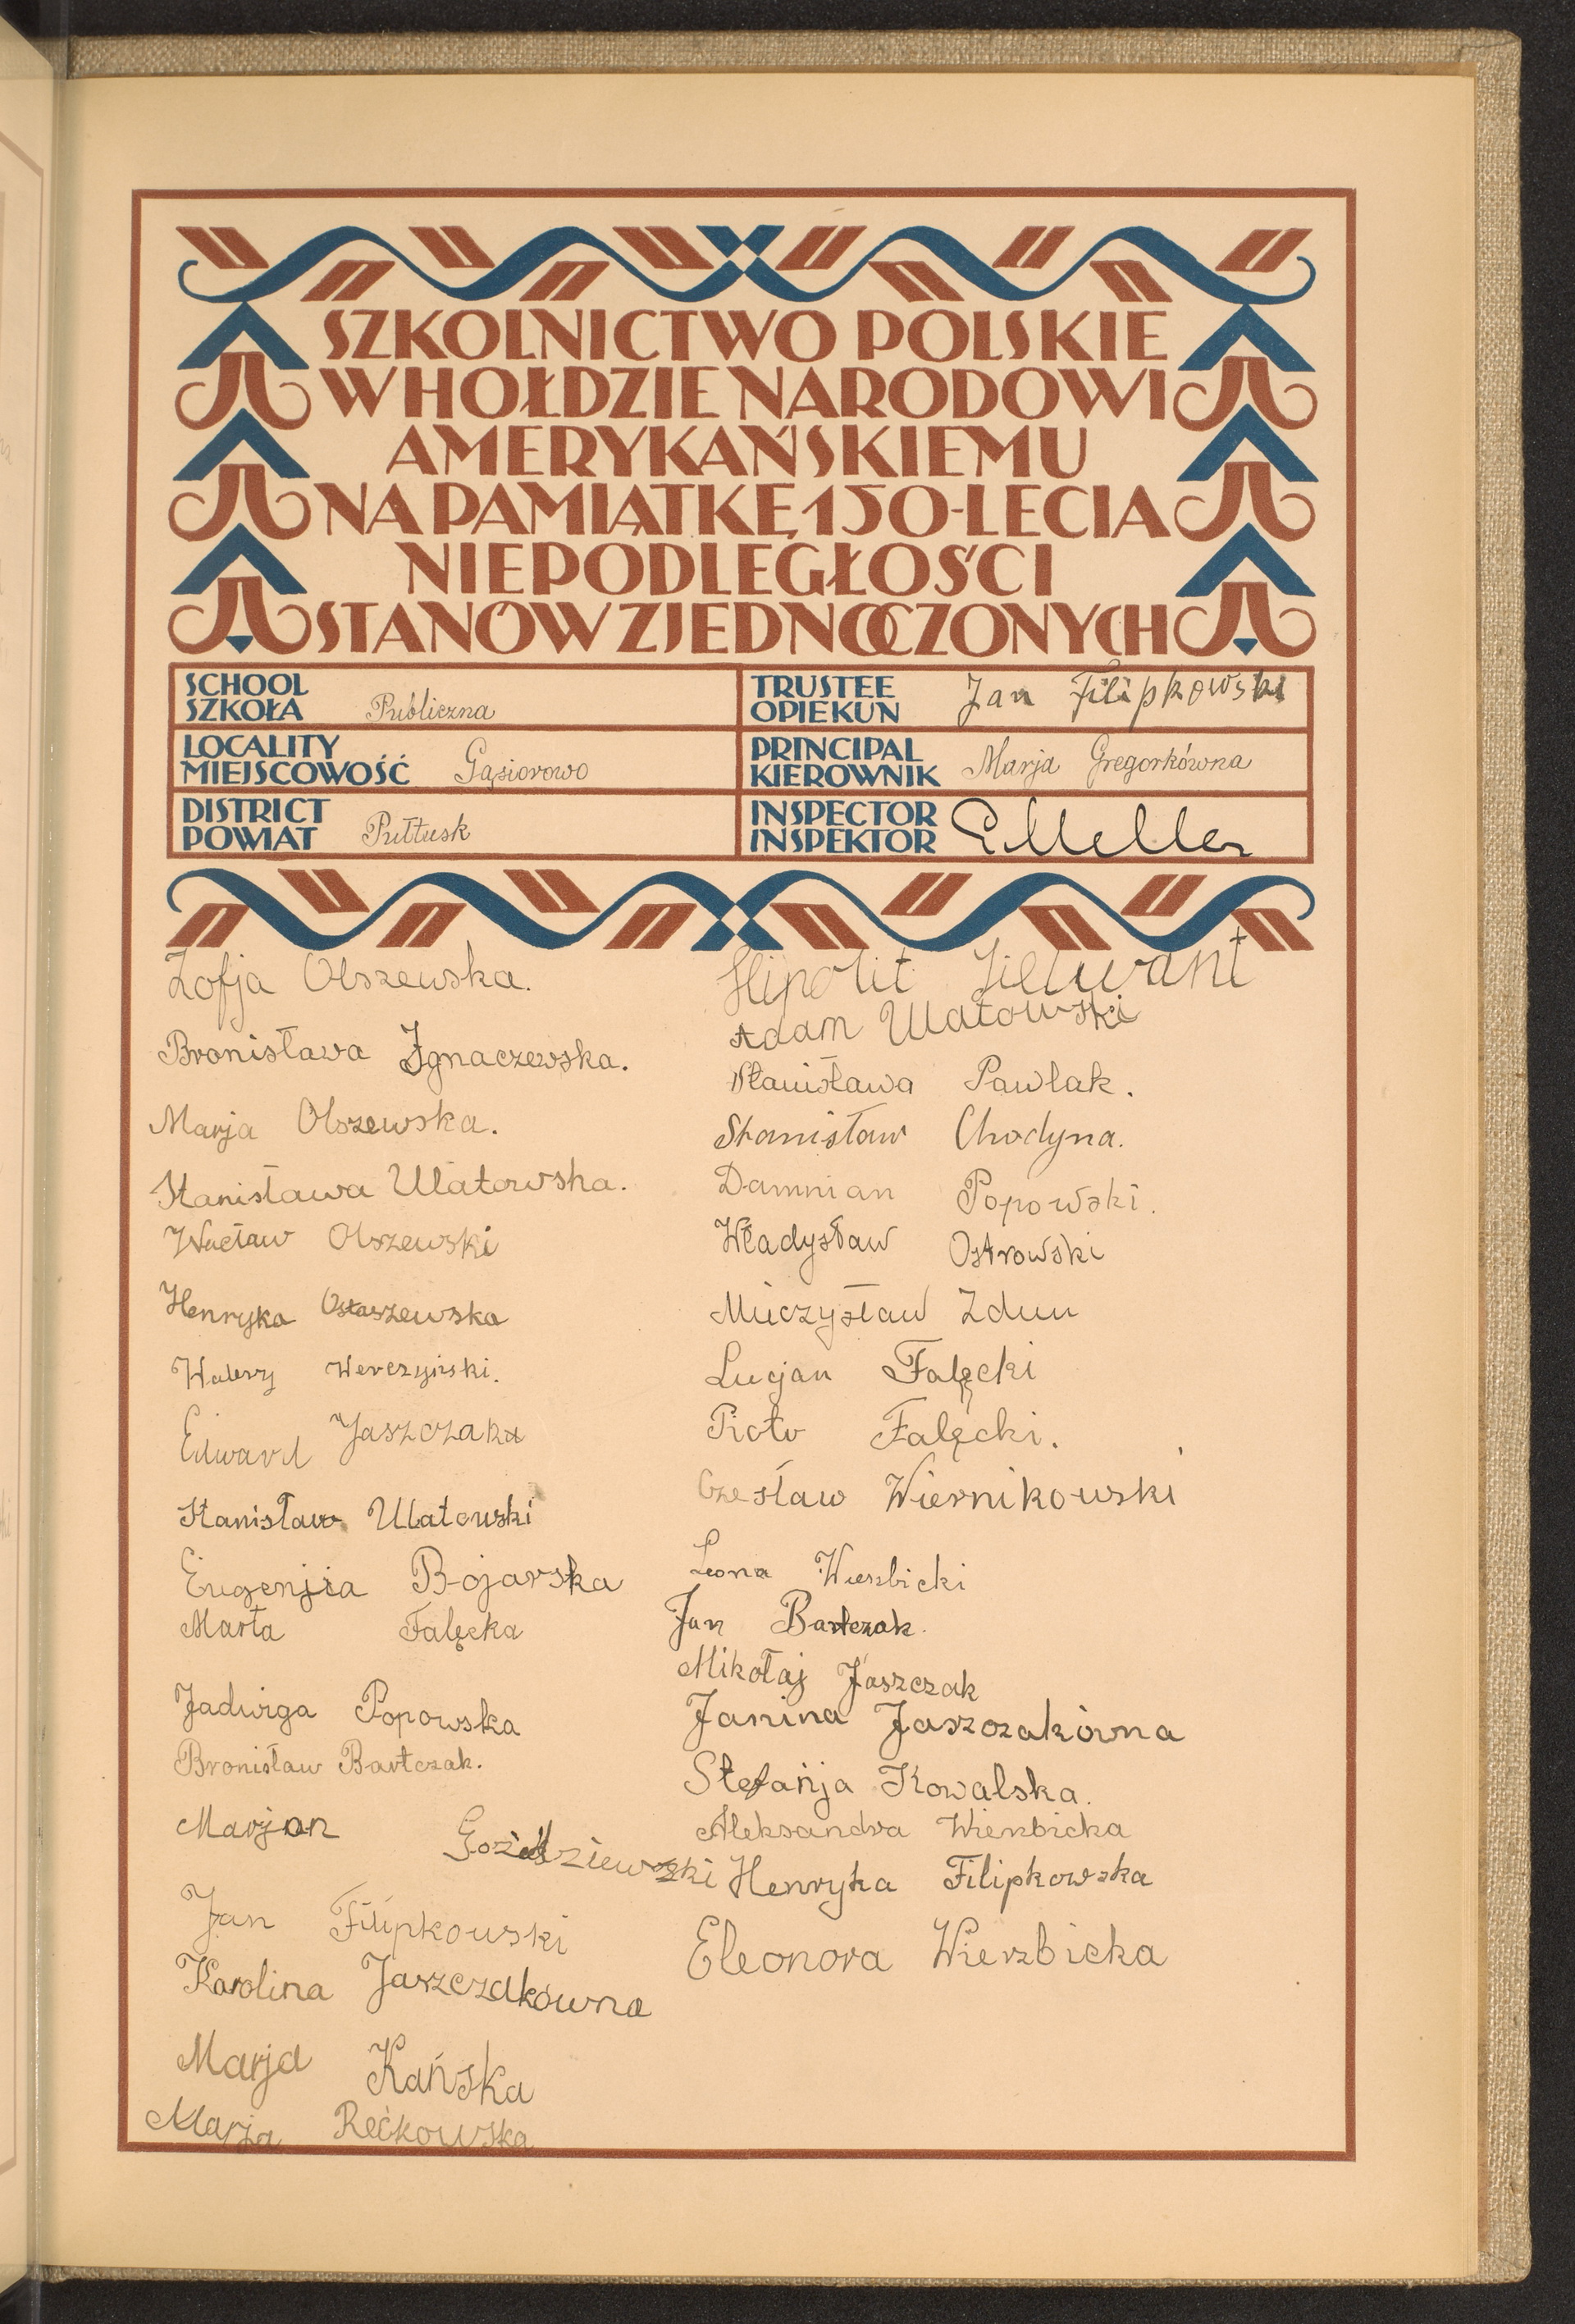 SZKOLNICTWO POLSKIE
W HOŁDZIE NARODOWI
AMERYKAŃSKIEMU
NA PAMIĄTKĘ 150-LECIA
NIEPODLEGŁOŚCI
STANÓW ZJEDNOCZONYCH
SCHOOL
SZKOŁA Publiczna
TRUSTEE
OPIEKUN Jan Filipkowski
LOCALITY
MIEJSCOWOŚĆ Gąsiorowo
PRINCIPAL
KIEROWNIK Marja Gregorkówna
DISTRICT
POWIAT Pułtusk
INSPECTOR
INSPEKTOR
Zofja Olszewska.
Bronisława Ignaczewska.
Marja Olszewska.
Stanisława Ulatowska.
Wacław Olszewski
Henryka Ostaszewska
Walery Werczyński.
Edward Jaszczaka
Stanisław Ulatowski
Eugenjia Bojarska
Marta Falęcka
Jadwiga Popowska
Bronisław Bartczak.
Marjan
Jan Filipkowski
Karolina Jaszczakówna
Marja Kańska
Marja Rećkowska
Hipolit
Adam Ulatowski
Stanisława Pawlak.
Stanisław Chodyna.
Damnian Popowski.
Władysław Ostrowski
Mieczysław Zdun
Lucjan Falęcki
Piotr Falęcki.
Czesław Wiernikowski
Leona Wierzbicki
Jan Bartczak.
Mikołaj Jaszczak
Janina Jaszczakówna
Stefanja Kowalska.
Aleksandra Wierzbicka
Henryka Filipkowska
Eleonora Wierzbicka